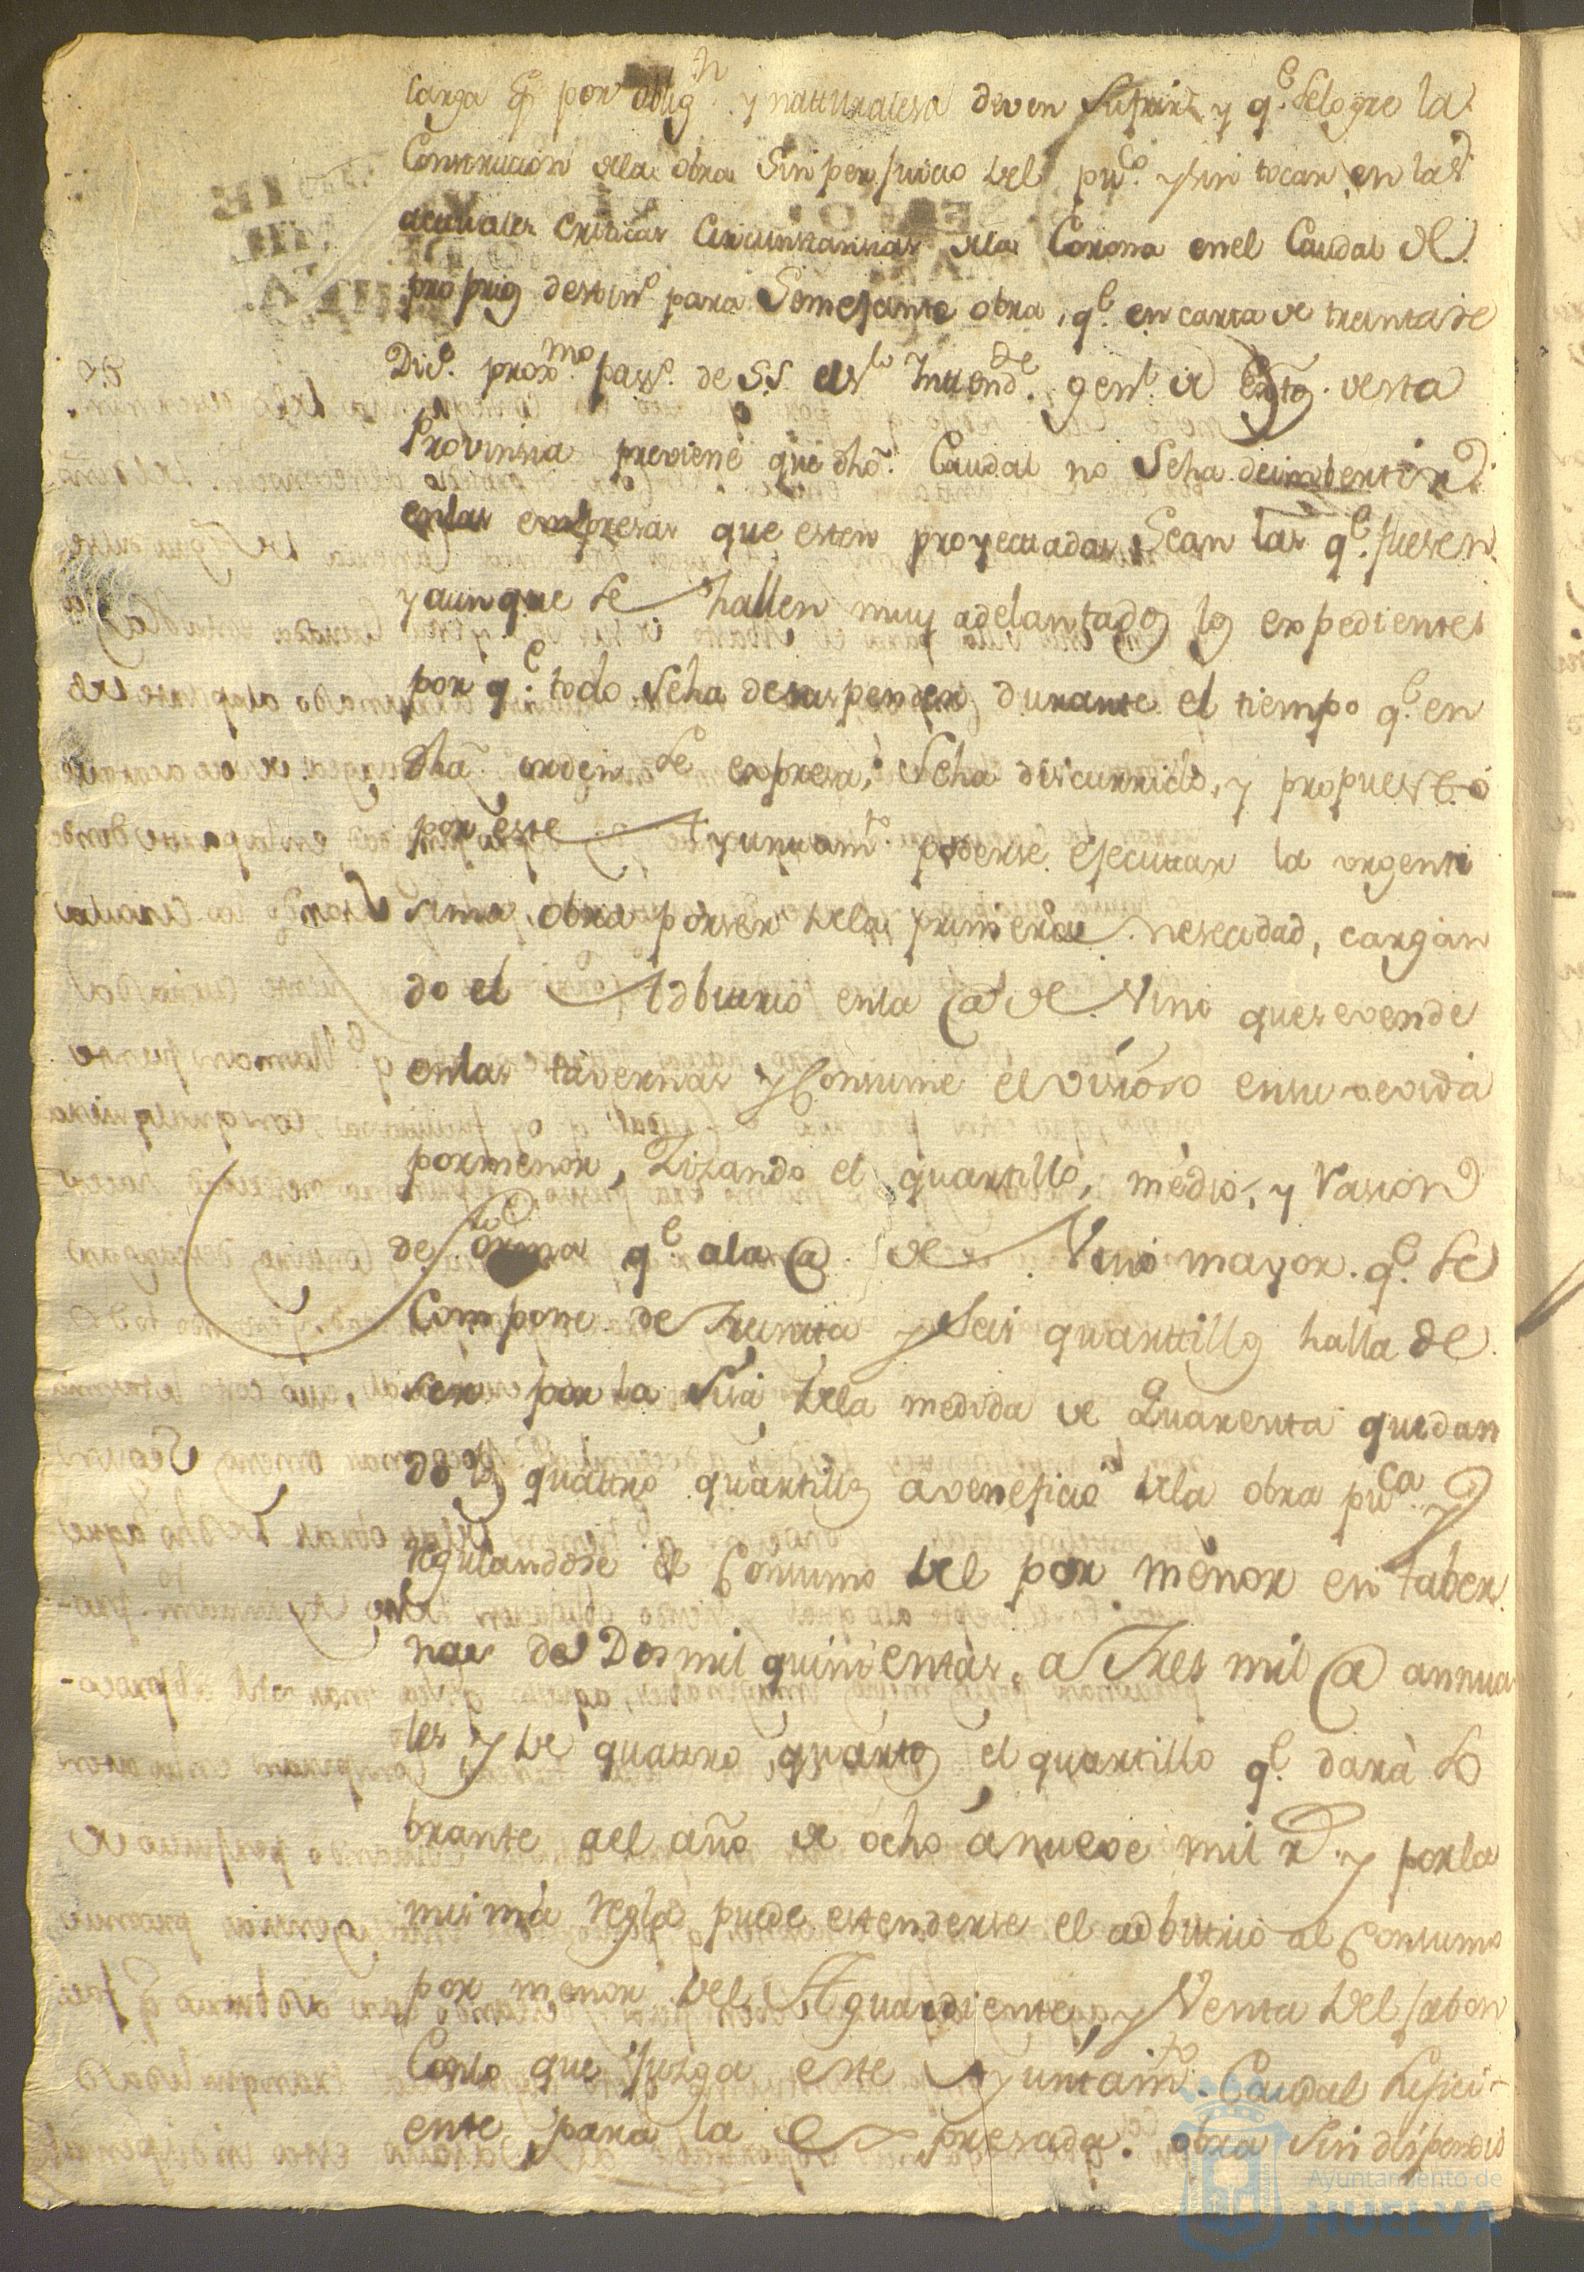 carga q.e por oblig.n y natturalesa deven sufrir, y q.e selogre la
Construcion dela obra sin perjuicio del pu.co ysin tocar en las
actuales criticas Circunstansias dela Corona enel Caudal de
proprios destin.o para Semejante obra, q.e en carta de treinta de
Dic.e prox.mo pas.o de SS. el s.r Intend.te gen.l de Exto. desta
Provinsia previene que dho. Caudal no Seha deimbertir
enlas empresas que esten proyectadas Sean las q.e fuesen
y aunque se hallen muy adelantados los expedientes
por q.e todo seha desuspender durante el tiempo q.e en
dha orden se expresa, Seha discurrido, y propuesto
por este Ayuntam.to poderse ejecuttar la urgenti
sima obra porser dela primera nesecidad, cargan
do el Adbitrio enla @ de Vino quesevende
enlas tavernas y Consume elvisioso ensu vevida
pormenor, Zizando el quartillo, medio, y Vasion
de forma q.e ala @ de Vino mayor q.e se
Compone de Treinta y Seis quarttillos halla de
ser por la Sisa dela medida de Quarenta quedan
do los quattro quartillos avenefició dela obra pu.ca y
regulandose el Consumo del por menor en taber
nas de Dos mil quinientas, a Tres mil @ annua
les y de quattro quartos el quartillo q.e darà So
brante ael año de ocho ánueve mil r.s y porla
misma regla puede estenderse el adbitrio al Consumo
por menor del Aguardiente, y Venta del jabon
Conlo que juzga este Ayuntam.to Caudal sufici-
ente para la Expresada obra sin dispendio
Ayuntamiento de
HUELVA